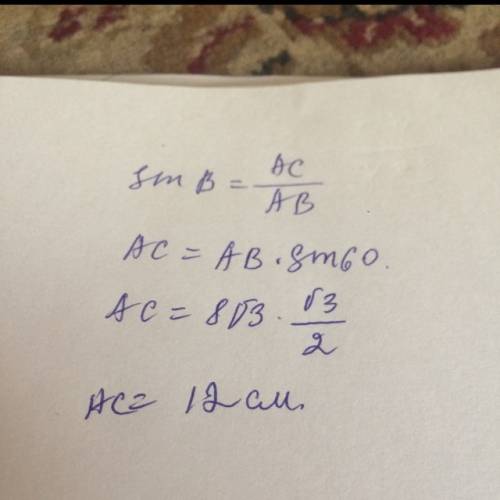 sin B = AC / AB
AC = AB · sin 60.
AC = 8√3 · √3 / 2
AC = 12 см.